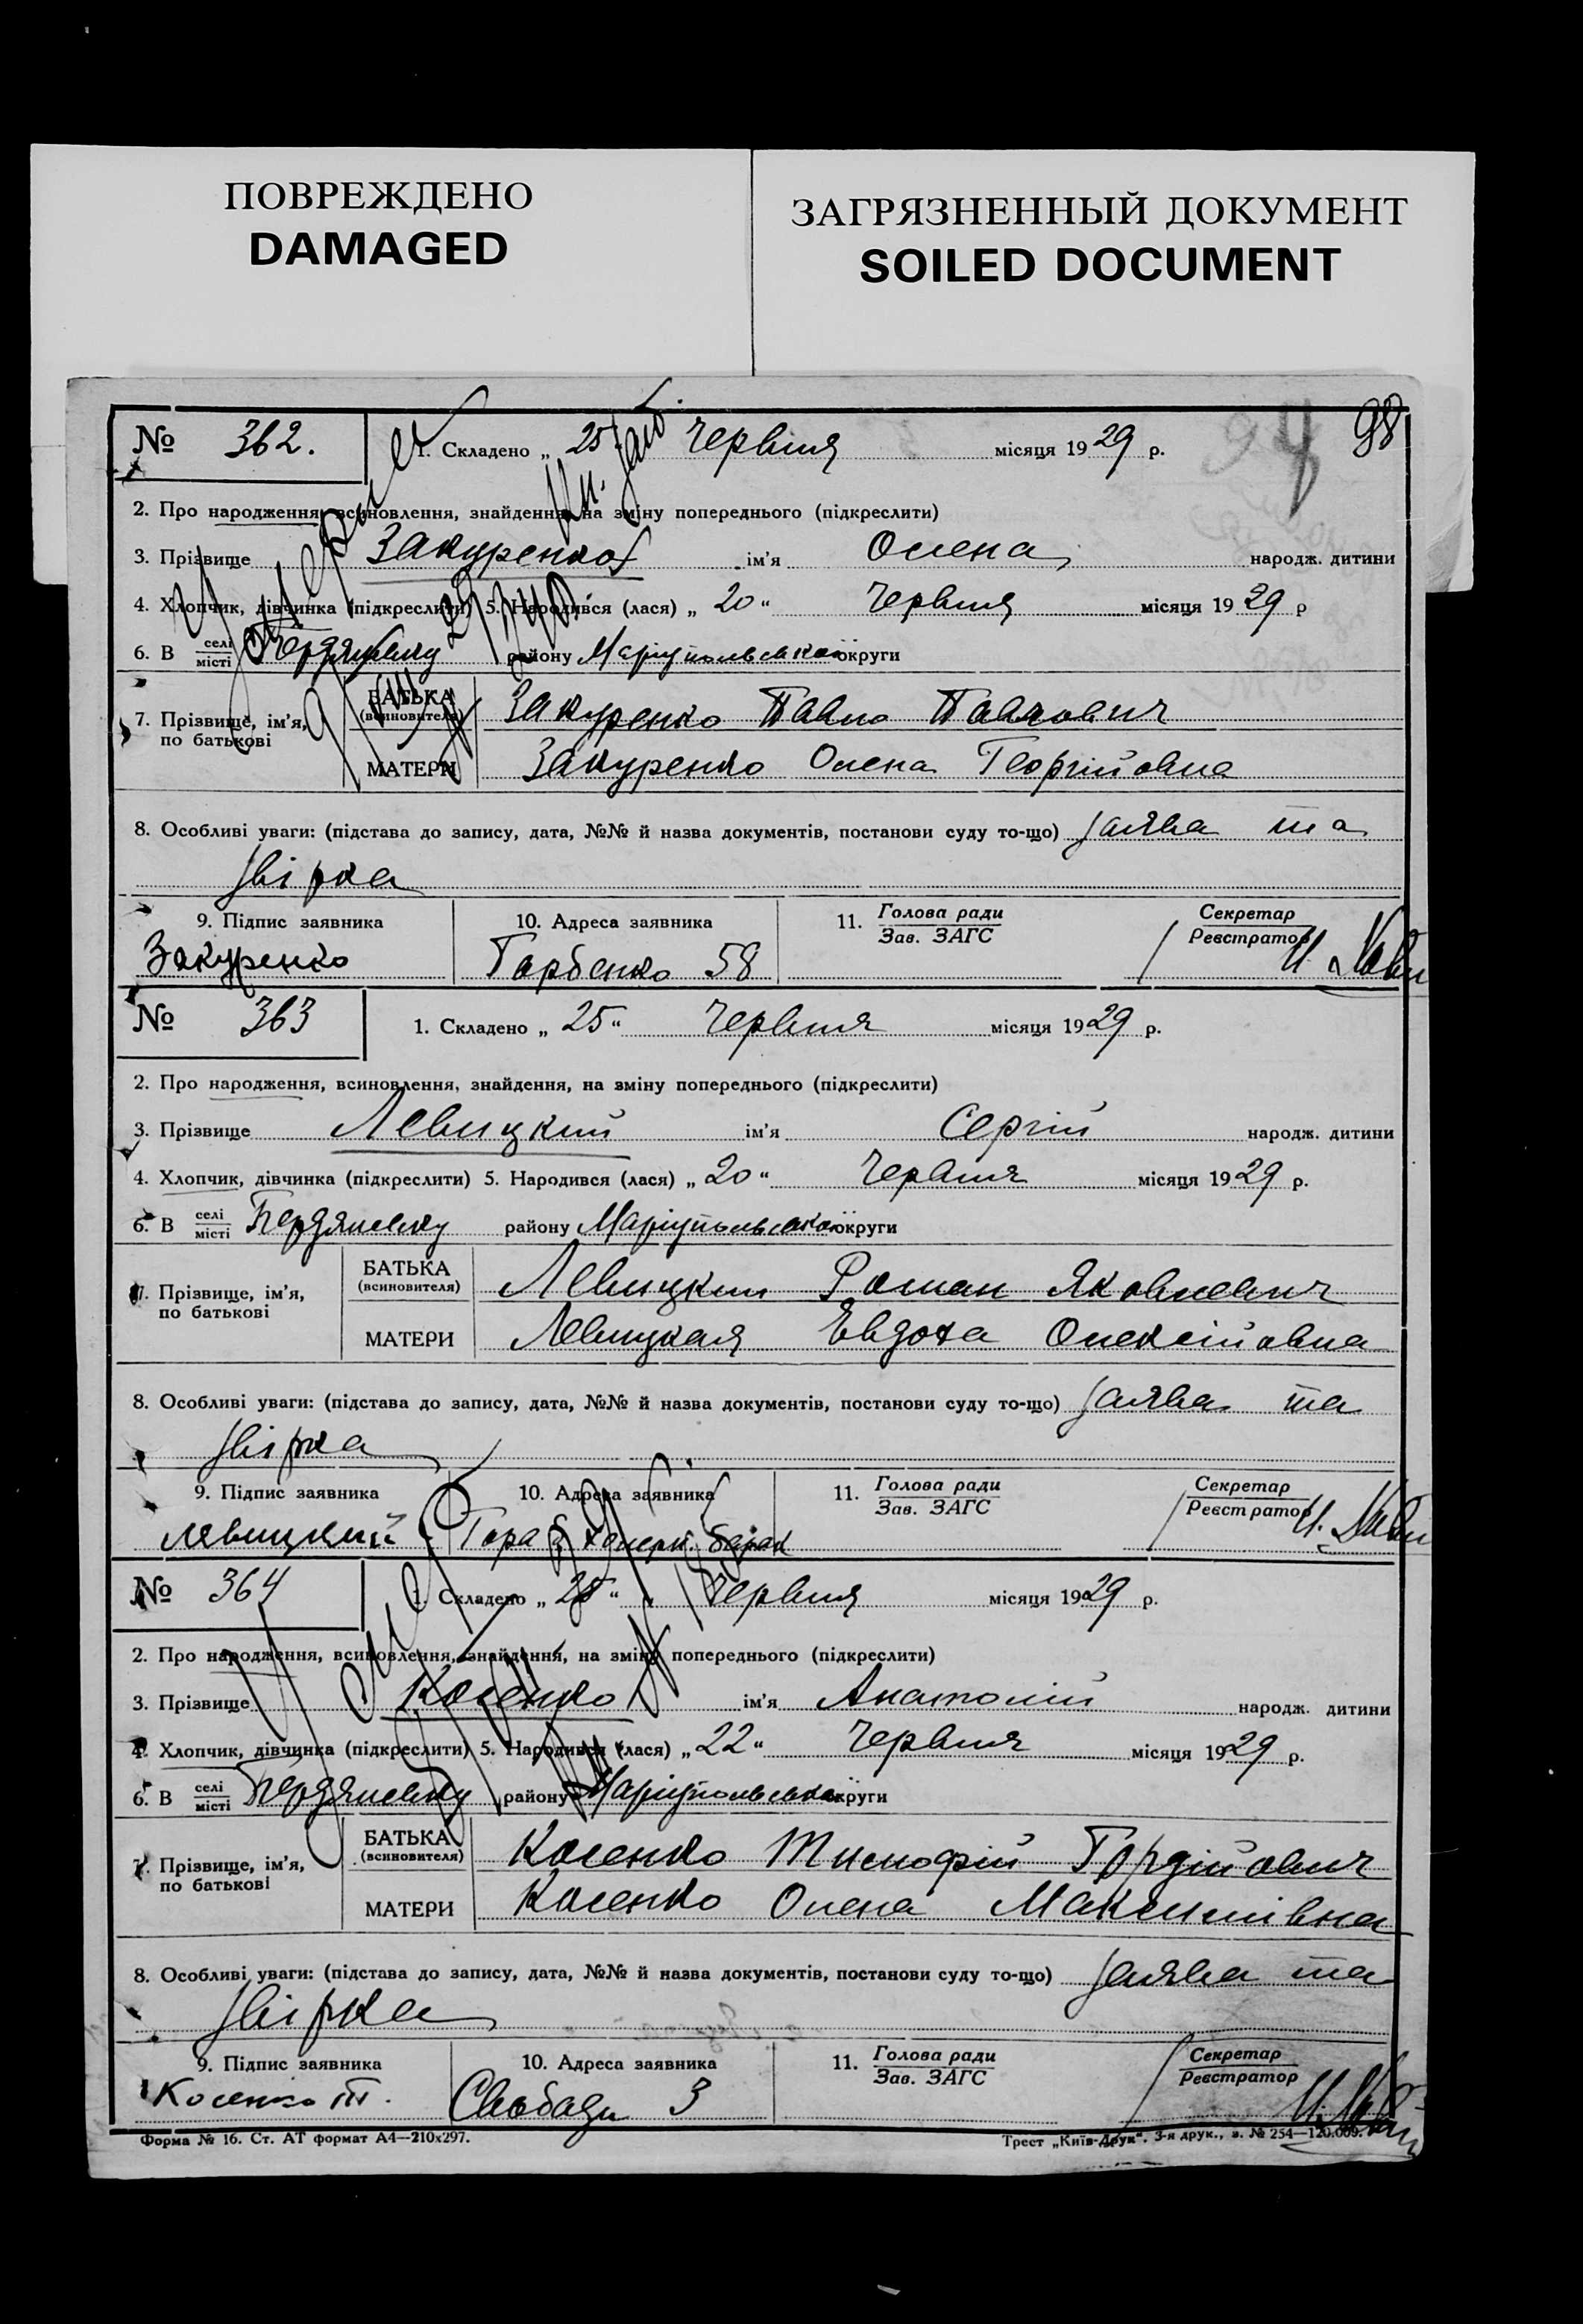 ПОВРЕЖДЕНО
DAMAGED
ЗАГРЯЗНЕННЫЙ ДОКУМЕНТ
SOILED DOCUMENT
98
№ 362. 1. Складено „ 25 Червіня місяця 1929 р.
2. Про народження, всиновлення, знайдення, на зміну попереднього (підкреслити)
3. Прізвище Закуренко ім'я Олена народж. дитини
4. Хлопчик, дівчинка (підкреслити) 5. Народився (лася) „ 20 “ Червня місяця 1929 р
6. В селі місті Бердянську району Маріупольської округи
7. Прізвище, ім'я, по батькові
БАТЬКА (всиновителя) Закуренко Павло Павлович
МАТЕРИ Закуренко Олена Георгійовна
8. Особливі уваги: (підстава до запису, дата, №№ й назва документів, постанови суду то-що) заява та
звірка
9. Підпис заявника 10. Адреса заявника 11. Голова ради Зав. ЗАГС Секретар Реєстратор
Закуренко Горбенко 58
№ 363 1. Складено „ 25 “ Червня місяця 1929 р.
2. Про народження, всиновлення, знайдення, на зміну попереднього (підкреслити)
3. Прізвище Левицкий ім'я Сергій народж. дитини
4. Хлопчик, дівчинка (підкреслити) 5. Народився (лася) „ 20 “ Червня місяця 1929 р.
6. В селі місті Бердянську району Маріупольської округи
7. Прізвище, ім'я, по батькові
БАТЬКА (всиновителя) Левицкий Роман Яковлевич
МАТЕРИ Левицкая Евдоха Олексійовна
8. Особливі уваги: (підстава до запису, дата, №№ й назва документів, постанови суду то-що) заява та
звірка
9. Підпис заявника 10. Адреса заявника 11. Голова ради Зав. ЗАГС Секретар Реєстратор
Левицкий Гора барак
№ 364 1. Складено „ 25 “ Червня місяця 1929 р.
2. Про народження, всиновлення, знайдення, на зміну попереднього (підкреслити)
3. Прізвище Косенко ім'я Анатолій народж. дитини
4. Хлопчик, дівчинка (підкреслити) 5. Народився (лася) „ 22 “ Червня місяця 1929 р.
6. В селі місті Бердянську району Маріупольської округи
7. Прізвище, ім'я, по батькові
БАТЬКА (всиновителя) Косенко Тимофій Гордійович
МАТЕРИ Косенко Олена Максимівна
8. Особливі уваги: (підстава до запису, дата, №№ й назва документів, постанови суду то-що) заява та
звірка
9. Підпис заявника 10. Адреса заявника 11. Голова ради Зав. ЗАГС Секретар Реєстратор
Косенко Т. Свободи 3
Форма № 16. Ст. АТ формат А4—210х297.
Трест „Київ-Друк“. 3-я друк., з. № 254—120.000.